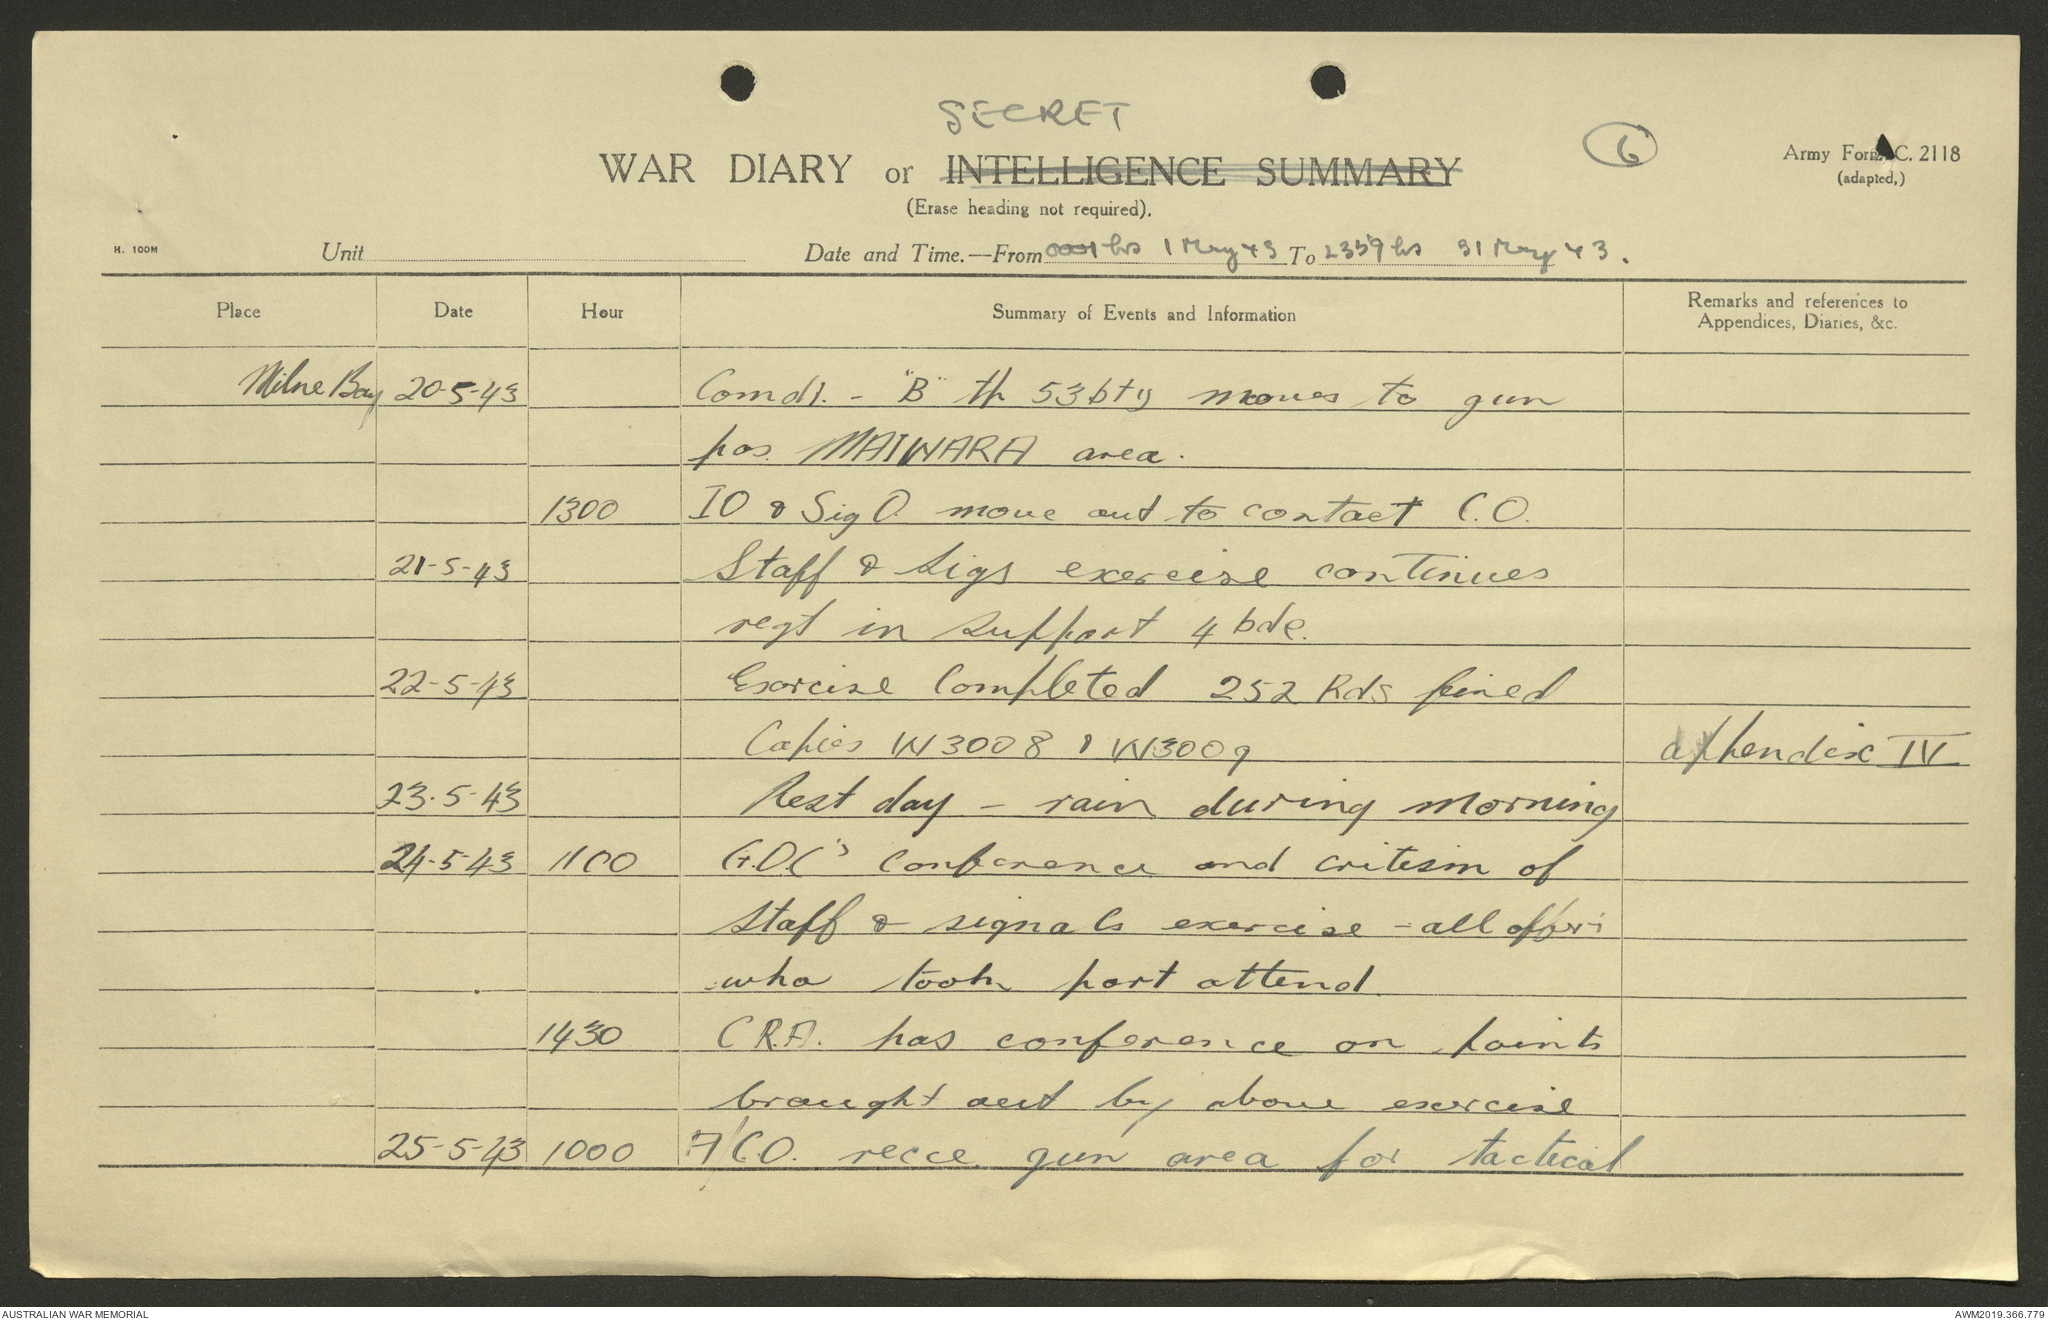 SECRET
WAR DIARY or INTELLIGENCE SUMMARY
(Erase heading not required).
6
Army Form C. 2118
(adapted,)
H. 100M
Unit
Date and Time.—From 0001 hrs 1 May 43 To 2359 hrs 31 May 43.
Place Date Hour Summary of Events and Information Remarks and references to
Appendices, Diaries, &c.
Milne Bay 20-5-43 Comdr. - "B" tp 53 bty moves to gun
pos. MAIWARA area.
1300 IO & Sig O. move out to contact C.O.
21-5-43 Staff & Sigs exercise continues
regt in support 4 bde.
22-5-43 Exercise Completed 252 Rds fired
Copies W3008 & W3009 appendix IV
23.5-43 Rest day - rain during morning
24-5-43 1100 G.O.C's conference and critism of
staff & signals exercise - all offrs
who took part attend.
1430 C.R.A. has conference on points
brought out by above exercise
25-5-43 1000 A/C.O. recce gun area for tactical
AUSTRALIAN WAR MEMORIAL
AWM2019.366.779